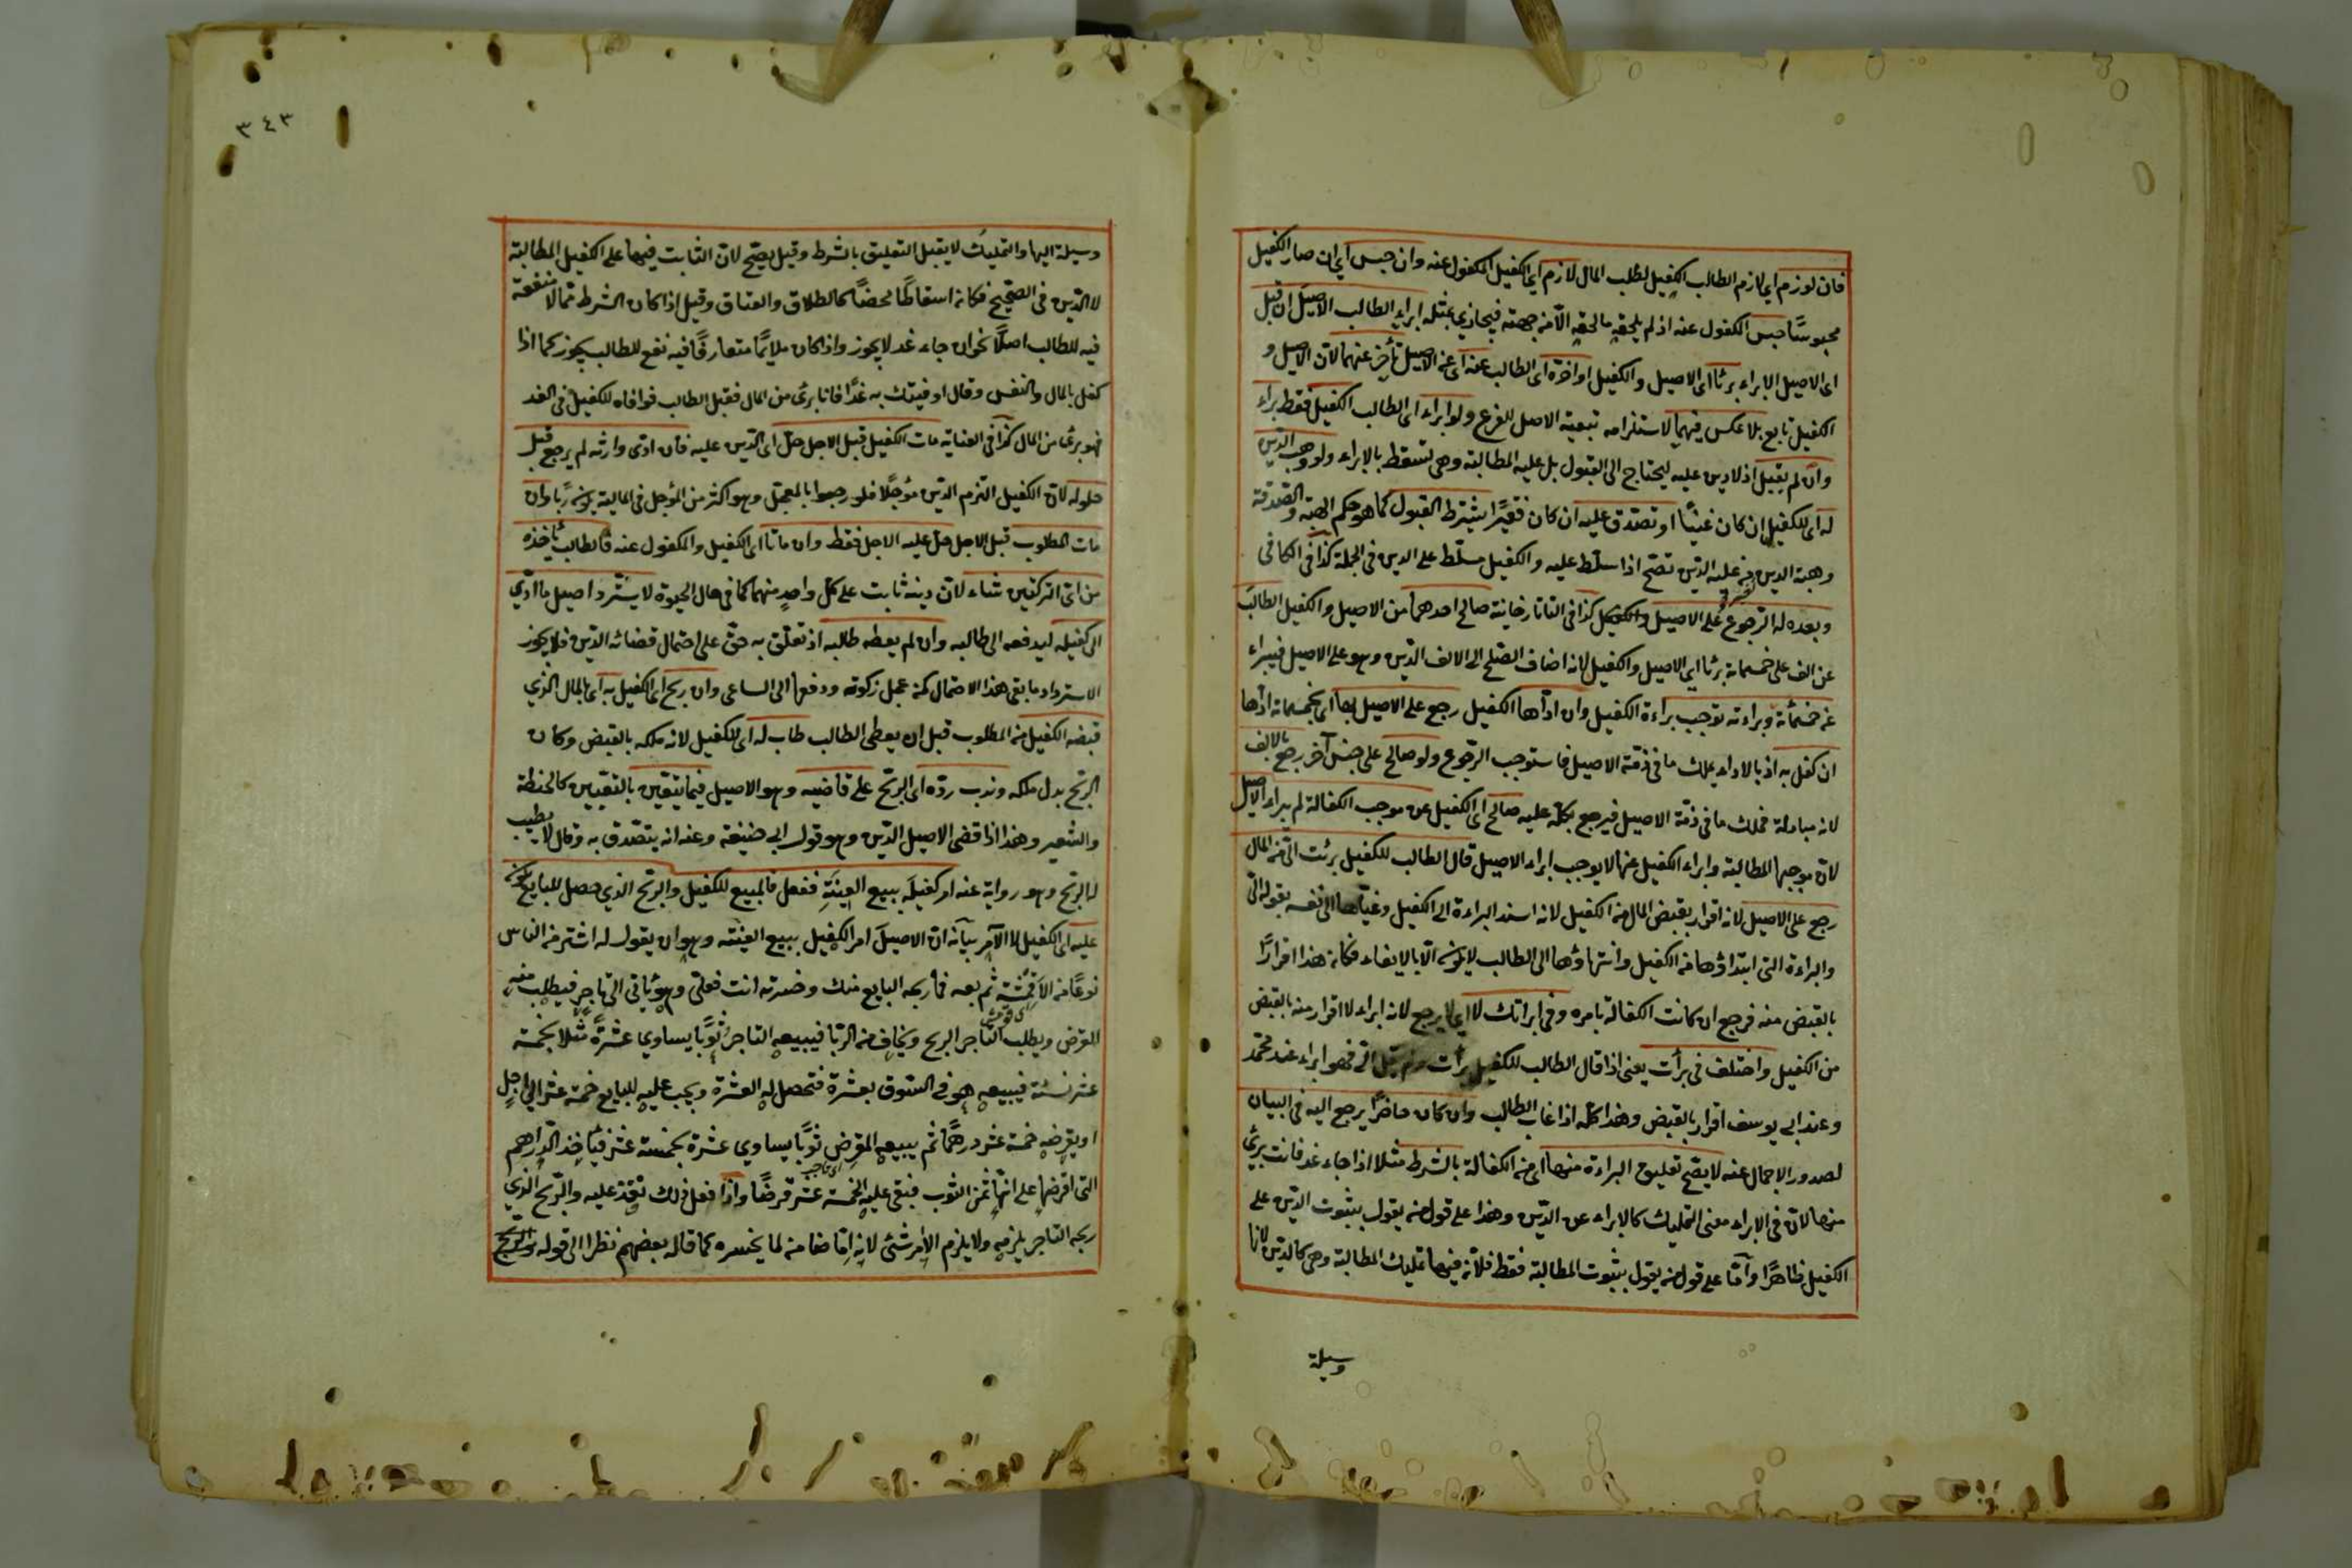 فان لوزم اي لازم الطالب الكفيل لطلب المال لازم اي الكفيل المكفول عنه وان حبس اي ان صار الكفيل
محبوسًا حبس المكفول عنه اذ لم يلحقه ما لحقه الا من جهته فيجازي بمثله ابراء الطالب الاصيل ان قبل
اى الاصيل الابراء برئا اى الاصيل والكفيل او اخره اى الطالب عنه اى عن الاصيل تأخر عنهما لان الاصيل و
الكفيل تابع بلا عكس فيهما لاستلزامه تبعية الاصل للفرع ولو ابراء اى الطالب الكفيل فقط براء
وان لم يقبل اذ لا دين عليه ليحتاج الى القبول بل عليه المطالبة وهى تسقط بالابراء ولو وهب الدين
له اى للكفيل ان كان غنيًا او تصدق عليه ان كان فقيرًا يشترط القبول كما هو حكم الهبة والصدقة
وهبة الدين من عليه الدين تصح اذا سلط عليه والكفيل مسلط على الدين فى الجملة كذا فى الكافى
وبعده له الرجوع على الاصيل كذا فى التاتارخانية صالح احدهما من الاصيل والكفيل الطالب
عن الف على خمسمائة برئا اى الاصيل والكفيل لانه اضاف الصلح الى الالف الدين وهو على الاصيل فيبراء
عن خمسمائة وبراءته توجب براءة الكفيل وان اداها الكفيل رجع على الاصيل بها اى بخمسمائة اداها
ان كفل به اذ بالاداء يملك ما فى ذمة الاصيل فاستوجب الرجوع ولو صالح على جنس آخر رجع بالالف
لانه مبادلة فملك ما فى ذمة الاصيل فيرجع بكله عليه صالح اى الكفيل عن موجب الكفالة لم يبراء الاصيل
لان موجبها المطالبة وابراء الكفيل عنها لا يوجب ابراء الاصيل قال الطالب للكفيل برئت الى من المال
رجع على الاصيل لانه اقرار بقبض المال من الكفيل لانه اسند البراءة الى الكفيل وغياها الى نفسه بقوله الى
والبراءة التى ابتداؤها من الكفيل وانتهاؤها الى الطالب لا يكون الا بالايفاء فكان هذا اقرارًا
بالقبض منه فرجع ان كانت الكفالة بامره وفى ابراتك لا اى لا يرجع لانه ابراء لا اقرار منه بالقبض
من الكفيل واختلف فى برأت يعنى اذا قال الطالب للكفيل برأت ولم يقل الى فهو ابراء عند محمد
وعند ابى يوسف اقرار بالقبض وهذا كله اذا غاب الطالب وان كان حاضرًا يرجع اليه فى البيان
لصدور الاجمال عنه لا يصح تعليق البراءة منها اى من الكفالة بالشرط مثلا اذا جاء غد فانت برئ
منها لان فى الابراء معنى التمليك كالابراء عن الدين وهذا على قول من يقول بثبوت الدين على
الكفيل ظاهرًا وأما على قول من يقول بثبوت المطالبة فقط فلان فيها تمليك المطالبة وهى كالدين لانها
وسيلة
٣٤٣
وسيلة اليها والتمليك لا يقبل التعليق بالشرط وقيل يصح لان الثابت فيها على الكفيل المطالبة
لا الدين فى الصحيح فكان اسقاطًا محضًا كالطلاق والعتاق وقيل اذا كان الشرط مما لا منفعة
فيه للطالب اصلًا نحو ان جاء غد لا يجوز واذا كان ملائمًا متعارفًا فيه نفع للطالب يجوز كما اذا
كفل بالمال والنفس وقال ان وفيتك به غدًا فانا برئ من المال فقبل الطالب فوافاه الكفيل فى الغد
فهو برئ من المال كذا فى العناية مات الكفيل قبل الاجل حل اى الدين عليه فان ادى وارثه لم يرجع قبل
حلوله لان الكفيل التزم الدين مؤجلًا فلو رجعوا بالمعجل وهو اكثر من المؤجل فى المالية يكون ربا وان
مات المطلوب قبل الاجل حل عليه الاجل فقط وان ماتا اى الكفيل والمكفول عنه فالطالب يأخذه
من اى التركتين شاء لان دينه ثابت على كل واحد منهما كما فى حال الحيوة لا يسترد اصيل ما ادى
الى كفيله ليدفعه الى طالبه وان لم يعطه طالبه اذ تعلق به حق على احتمال قضائه الدين فلا يجوز
الاسترداد ما بقى هذا الاحتمال كمن عجل زكوته ودفعها الى الساعى وان ربح اى الكفيل به اى بالمال الذي
قبضه الكفيل من المطلوب قبل ان يعطى الطالب طاب له اى للكفيل لانه ملكه بالقبض وكان
الربح بدل ملكه وندب رده اى الربح على قاضيه وهو الاصيل فيما يتعين بالتعيين كالحنطة
والشعير وهذا اذا قضى الاصيل الدين وهو قول ابى حنيفة وعنه انه يتصدق به وقال لا يطيب
له الربح وهو رواية عنه امر كفيله ببيع العينة ففعل فالمبيع للكفيل والربح الذي حصل للبايع يكون
عليه اى الكفيل لا الآمر بيانه ان الاصيل امر الكفيل ببيع العينة وهو ان يقول له اشتر من الناس
نوعًا من الاقمشة ثم بعه فما ربحه البايع منك وخسرته انت فعلى وهو يأتى الى تاجر فيطلب منه
القرض ويطلب التاجر الربح ويخاف من الربا فيبيعه التاجر ثوبًا يساوي عشرة مثلا بخمسة
عشر نسئة فيبيعه هو فى السوق بعشرة فتحصل له العشرة ويجب عليه للبايع خمسة عشر الى اجل
او يقرضه خمسة عشر درهمًا ثم يبيعه المقرض ثوبًا يساوي عشرة بخمسة عشر فيأخذ الدراهم
التى اقرضها على انها ثمن الثوب فبقى عليه الخمسة عشر قرضًا واذا فعل ذلك نفذ عليه والربح الذي
ربحه التاجر يلزمه ولا يلزم الآمر شئ لانه اما ضامن لما يخسره كما قاله بعضهم نظرا الى قوله